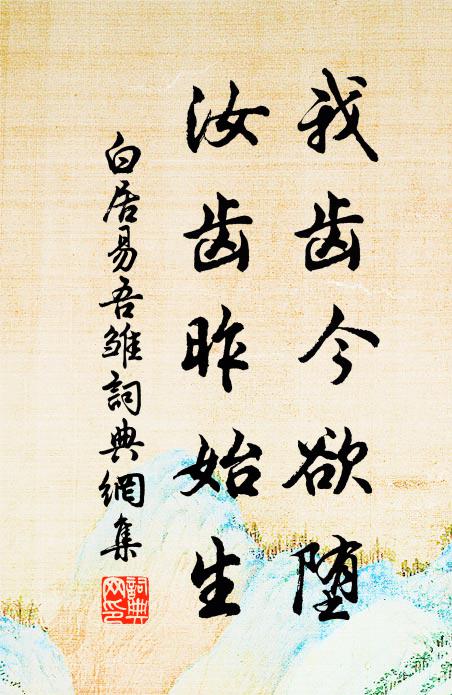 我齿今欲堕
汝齿昨始生
白居易吾雏詞典網集
詞典
网印